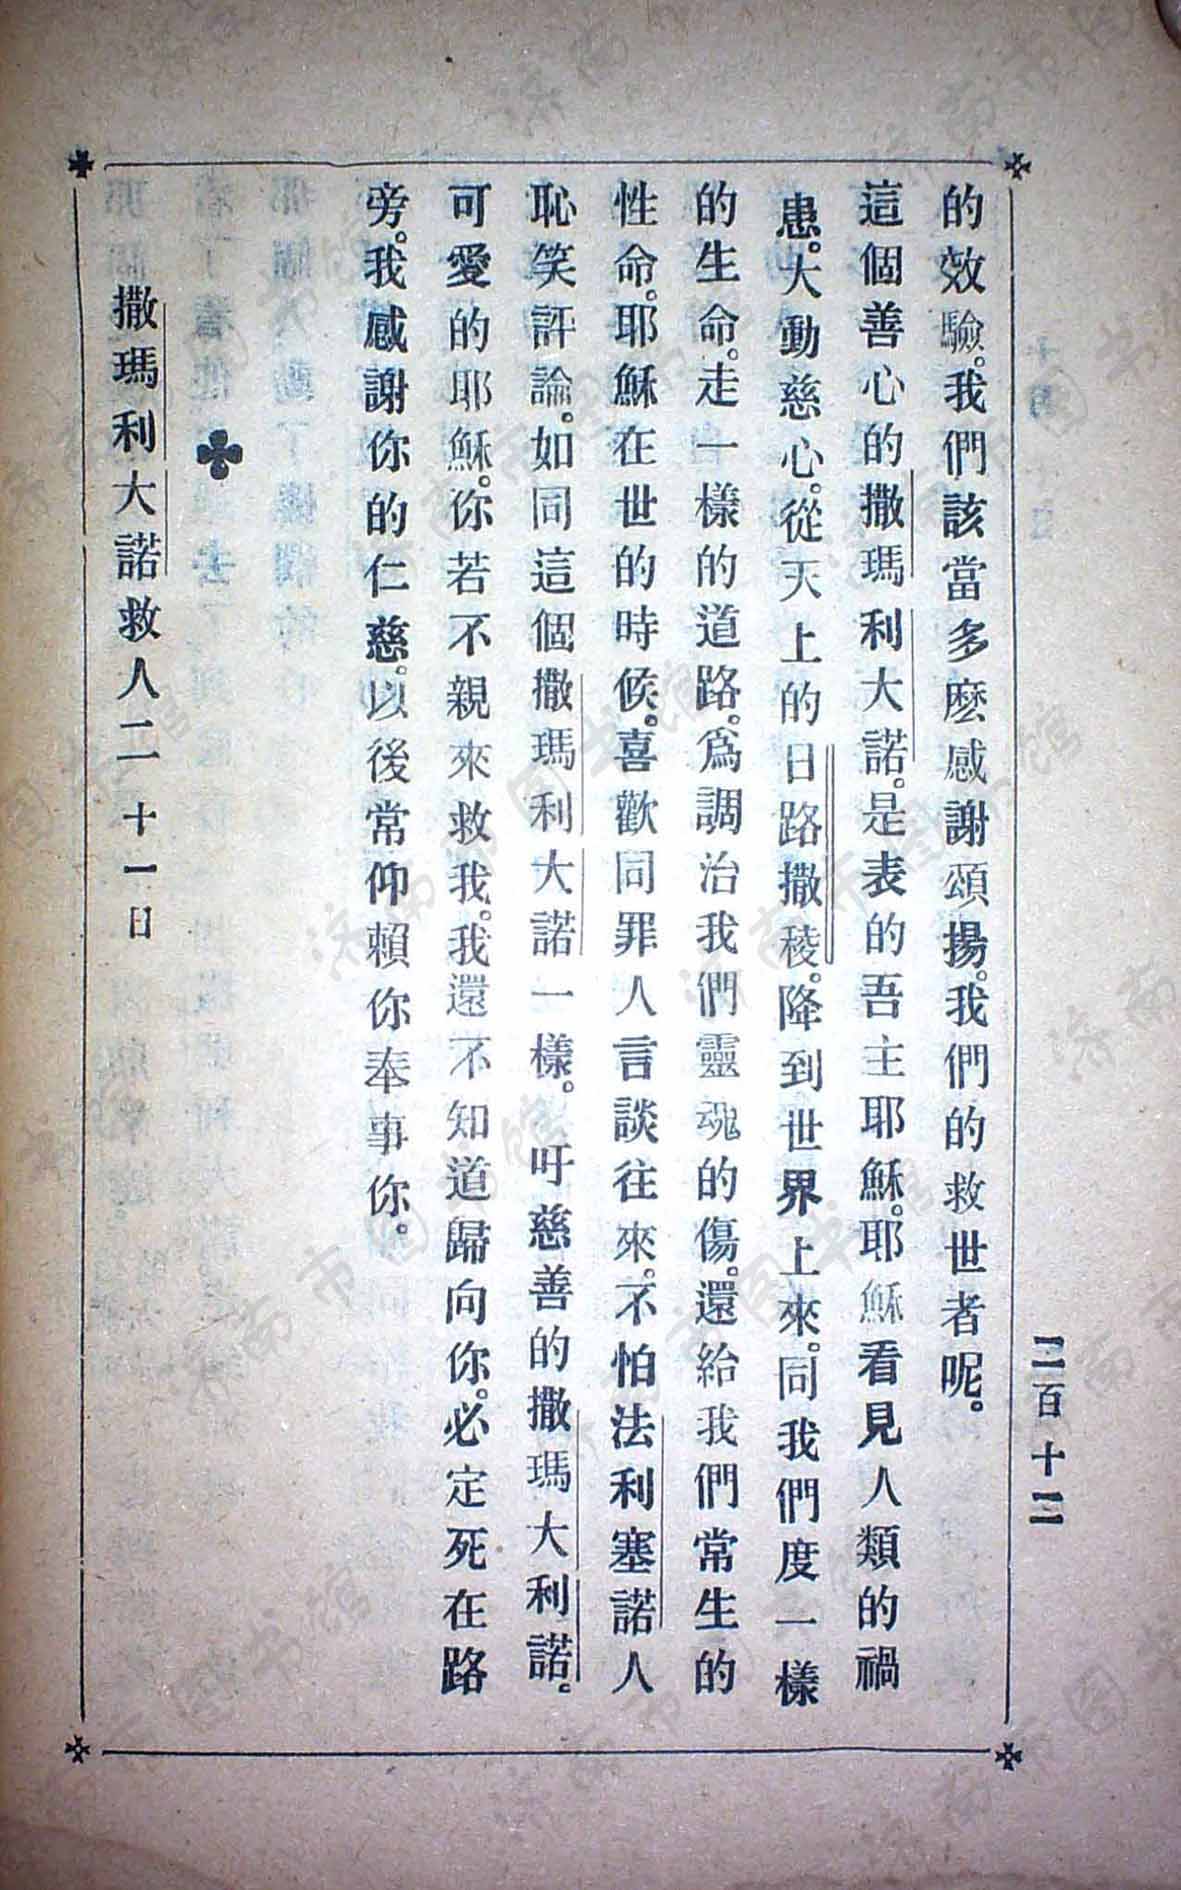 二百十三
的效驗。我們該當多麽感謝頌揚。我們的救世者呢。
這個善心的撒瑪利大諾。是表的吾主耶穌。耶穌看見人類的禍
患。大動慈心。從天上的日路撒稜。降到世界上來。同我們度一樣
的生命。走一樣的道路。爲調治我們靈魂的傷。還給我們常生的
性命。耶穌在世的時候。喜歡同罪人言談往來。不怕法利塞諾人
恥笑評論。如同這個撒瑪利大諾一樣。吁慈善的撒瑪大利諾。
可愛的耶穌。你若不親來救我。我還不知道歸向你。必定死在路
旁。我感謝你的仁慈。以後常仰賴你奉事你。
撒瑪利大諾救人二十一日
济南市图书馆